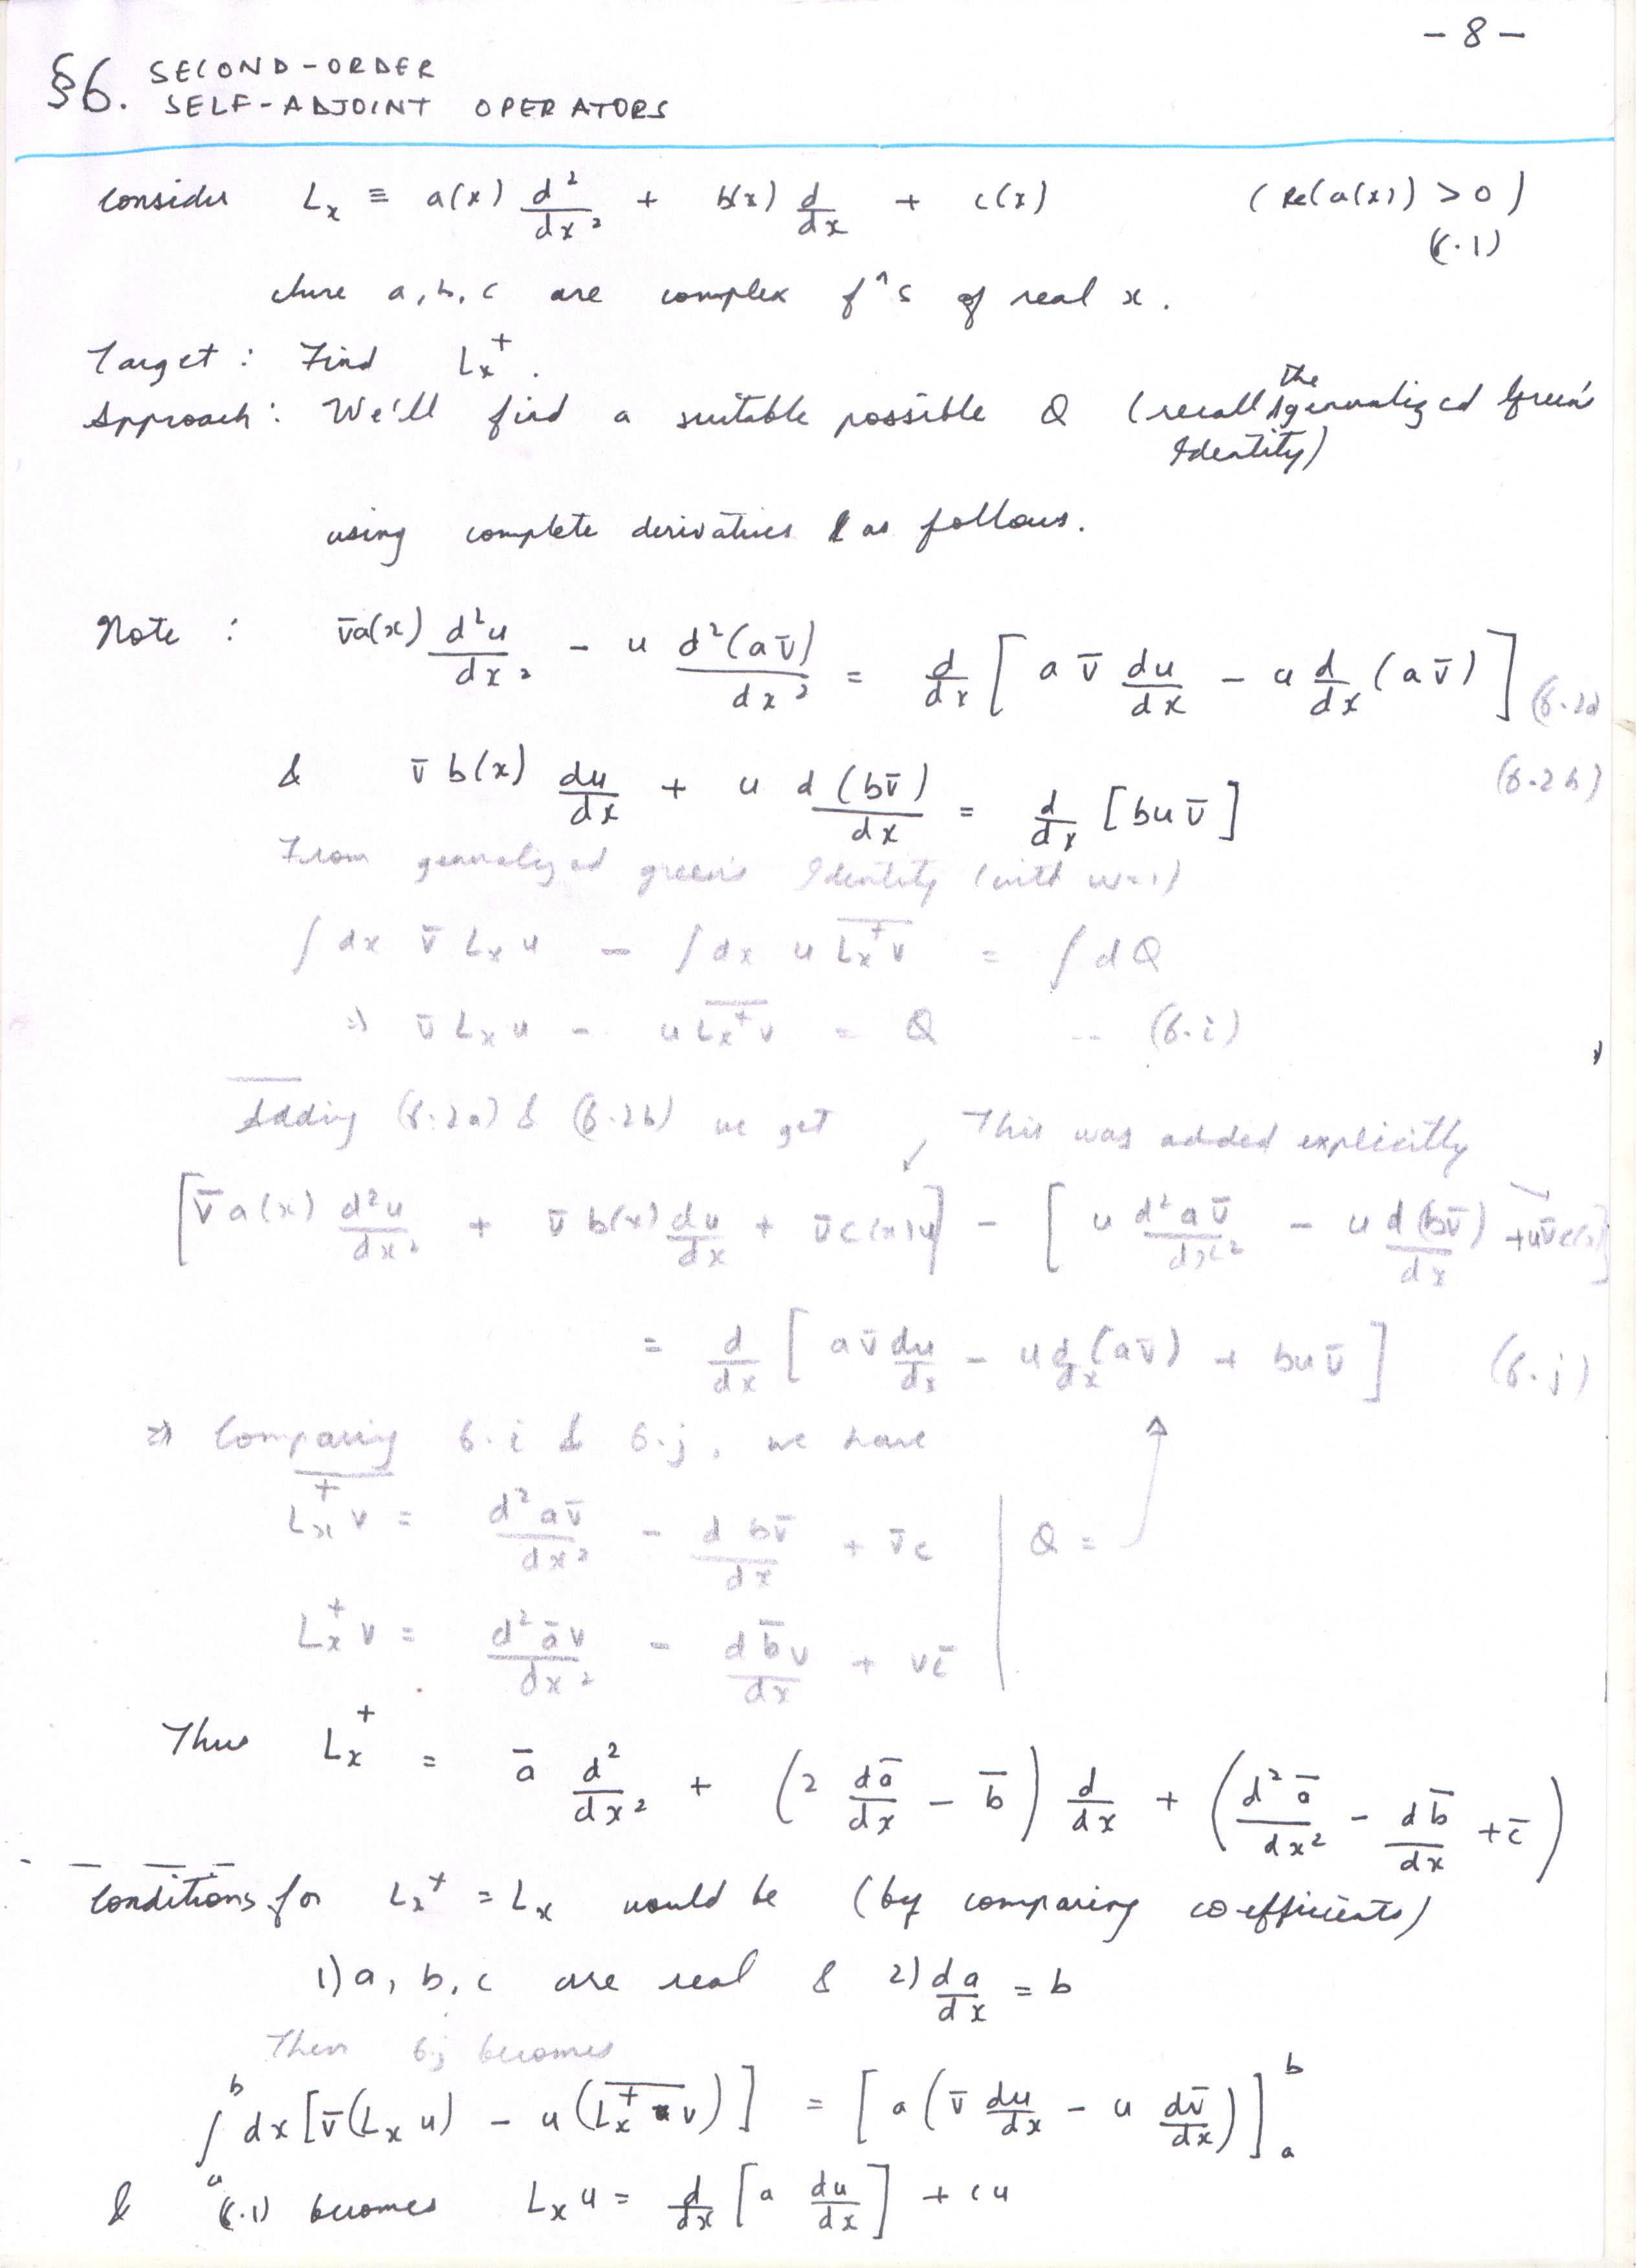 - 8 -
§6. SECOND-ORDER
SELF-ADJOINT OPERATORS
Consider L_x ≡ a(x) d²/dx² + b(x) d/dx + c(x) (Re(a(x)) > 0)
(6.1)
where a, b, c are complex fⁿs of real x.
Target : Find L_x⁺.
Approach : We'll find a suitable possible Q (recall the generalized Green's
Identity)
using complete derivatives & as follows.
Note : v̄a(x) d²u/dx² - u d²(av̄)/dx² = d/dx [ a v̄ du/dx - u d/dx (av̄) ] (6.2a
& v̄ b(x) du/dx + u d(bv̄)/dx = d/dx [buv̄] (6.2b)
From generalized green's Identity (with w=1)
∫dx v̄ L_x u - ∫dx u \overline{L_x⁺v} = ∫dQ
⇒ v̄ L_x u - u \overline{L_x⁺v} = Q -- (6.i)
Adding (6.2a) & (6.2b) we get This was added explicitly
[v̄a(x) d²u/dx² + v̄ b(x) du/dx + v̄c(x)u] - [u d²av̄/dx² - u d(bv̄)/dx + uv̄c(x)]
= d/dx [ av̄ du/dx - u d/dx (av̄) + buv̄ ] (6.j)
⇒ Comparing 6.i & 6.j, we have
\overline{L_x⁺v} = d²av̄/dx² - d bv̄/dx + v̄c | Q =
L_x⁺v = d²āv/dx² - d b̄v/dx + vc̄
Thus L_x⁺ = ā d²/dx² + (2 dā/dx - b̄) d/dx + (d²ā/dx² - db̄/dx + c̄)
Conditions for L_x⁺ = L_x would be (by comparing coefficients)
1) a, b, c are real & 2) da/dx = b
Then 6.j becomes
∫_a^b dx [v̄(L_x u) - u(\overline{L_x⁺ v})] = [a(v̄ du/dx - u dv̄/dx)]_a^b
& (6.1) becomes L_x u = d/dx [a du/dx] + cu